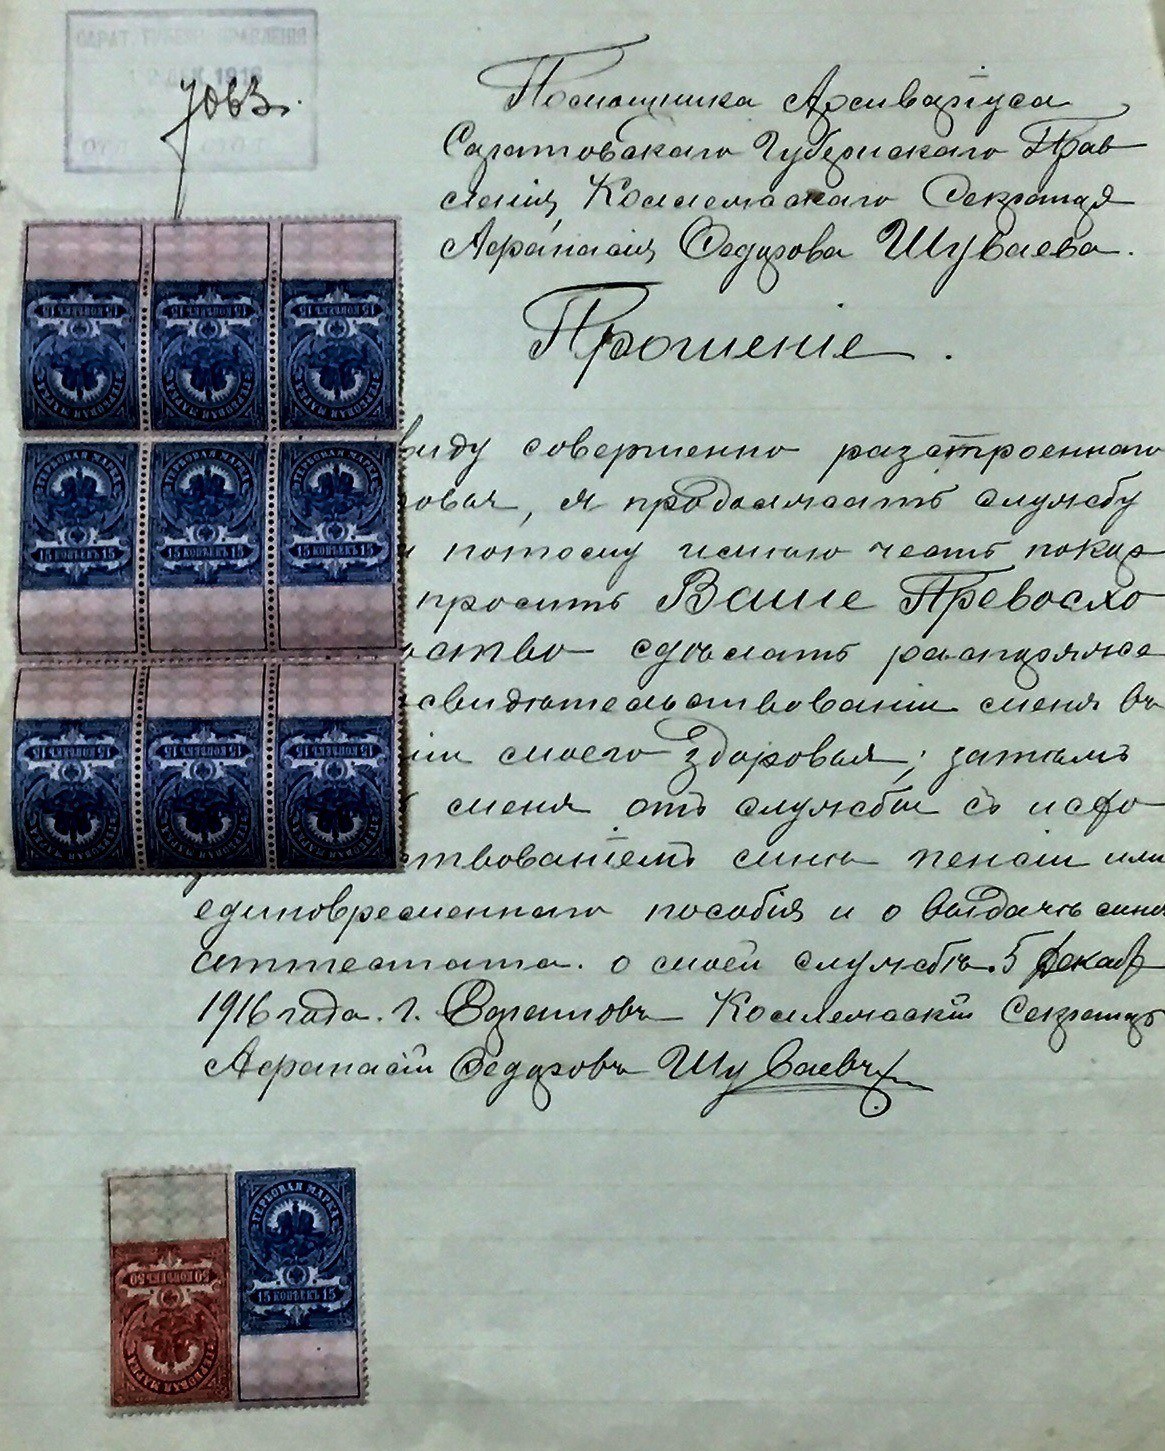 САРАТ. ГУБЕРН. ПРАВЛЕНІЯ
1916
7063.
Помощника Архиваріуса
Саратовскаго Губернскаго Прав
ленія, Коллежскаго Секретаря
Афанасія Федорова Шуваева.
Прошеніе.
виду совершенно разстроеннаго
ровья, я продолжать службу
и потому имѣю честь покор
просить Ваше Превосхо
ство сдѣлать распоряже
свидѣтельствованіи меня въ
ніи моего здоровья; затѣмъ
меня отъ службы съ исхо
тствованіемъ мнѣ пенсіи или
единовременнаго пособія и о выдачѣ мнѣ
аттестата о моей службѣ. 5 Декабр
1916 года. г. Саратовъ Коллежскій Секретарь
Афанасій Федоровъ Шуваевъ
15 КОПѢЕКЪ 15
ГЕРБОВАЯ МАРКА
15 КОПѢЕКЪ 15
ГЕРБОВАЯ МАРКА
15 КОПѢЕКЪ 15
ГЕРБОВАЯ МАРКА
ГЕРБОВАЯ МАРКА
15 КОПѢЕКЪ 15
ГЕРБОВАЯ МАРКА
15 КОПѢЕКЪ 15
ГЕРБОВАЯ МАРКА
15 КОПѢЕКЪ 15
15 КОПѢЕКЪ 15
ГЕРБОВАЯ МАРКА
15 КОПѢЕКЪ 15
ГЕРБОВАЯ МАРКА
15 КОПѢЕКЪ 15
ГЕРБОВАЯ МАРКА
50 КОПѢЕКЪ 50
ГЕРБОВАЯ МАРКА
ГЕРБОВАЯ МАРКА
15 КОПѢЕКЪ 15